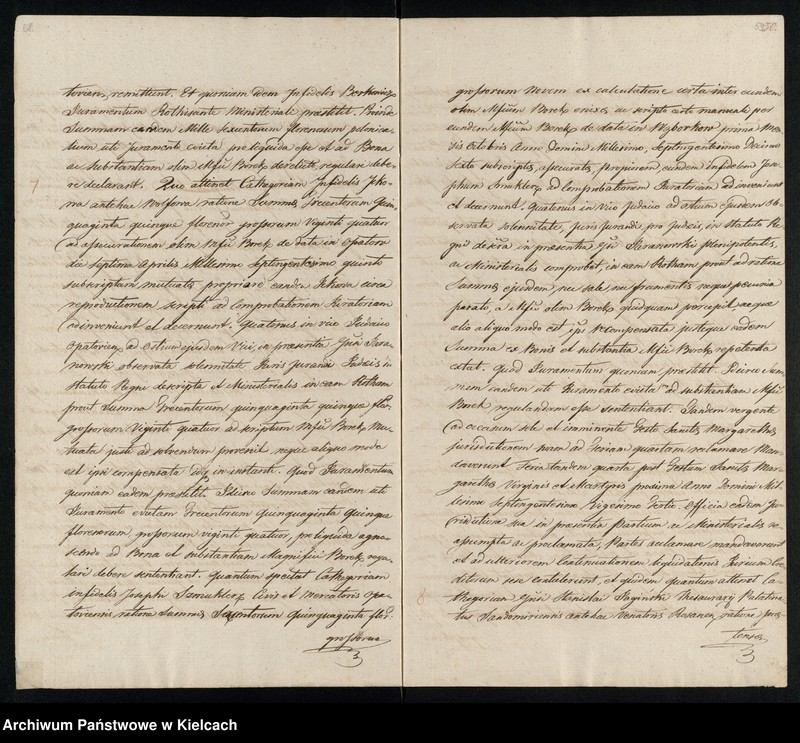 toriens, remittent. Et quoniam idem Infidelis Berkowicz
Juramentum Rothisante Ministeriale praestitit. Proinde
Summam eandem Mille Sexcentorum florenorum polonica-
lium uti Juramento evicta pro liquida esse et ad Bona
ac Substantiam olim Mfci Borek derelicta, regulari debe-
re declarant. Quo attinet Cathegoriam Infidelis
antehac Wolfowa ratione Summae, trecentorum Quin-
quaginta quinque florenor. grossorum Viginti quatuor
ad assecurationem olim Mfci Borek de data in Opatow
die septima Aprilis Millesimo Septingentesimo quinto
subscriptam mutuata, propriare eandem circa
reproductionem scripti ad Comprobationem Juratoriam
adinveniunt et decernunt. Quatenus in vice Judaico
Opatoviens. ad Ostium ejusdem Vici, in praesentia Gsii Sara-
nowski observata solennitate Juris Jurandi Judaeis in
Statuto Regni descripta et Ministerialis in eam Rotham
prout Summa trecentorum quinquaginta quinque flor.
grossorum Viginti quatuor ad scriptum Mfci Borek Mu-
tuata justi ad solvendum provenit neque aliquo modo
est ipsi compensata in instanti. Quod Juramentum
quoniam eadem praestitit. Ideirco Summam eandem uti
Juramento evictam trecentorum Quinquaginta Quinque
florenorum, grossorum viginti quatuor, pro liquida agno-
scendo ad Bona et substantiam Magnifici Borek regu-
lari debere sententiant. Quantum spectat Cathegoriam
infidelis Josephi Szmuklerz Civis et Mercatoris Opa-
toviensis ratione Summae Quinquaginta flor.
grossorum
grossorum Novem ex calculatione certa inter eundem
olim Mfcum Borek enixa, ac scripto arte manuali per
eundem Mfcum Borek de data in Wyborkow prima Men-
sis Octobris Anno Domini Millesimo, Septingentesimo Decimo
Sexto subscripto, assecurata, eundem infidelem Jose-
phum Szmuklerz ad Comprobationem Juratoriam adinveniunt
et decernunt. Quatenus in Vico Judaico ad ostium ejusdem Ob-
servata solennitate, Juris Jurandi, pro Judaeis, in Statuto Re-
gni descripta, in praesentia Gsii Saranowski plenipotentis,
ac Ministerialis comprobet, in eam Rotham prout ad ratione
Summae ejusdem, nec sale nec frumentis neque pecunia
parata, a Mfco olim Borek quidquam percepit, neque
alio aliquo modo est ipsi recompensata justeque eadem
Summa ex Bonis et substantia Mfci Borek repetenda
extat. Quod Juramentum quoniam praestitit. Ideirco Sum-
mam eandem uti Juramento evictam ad substantiam Mfci
Borek regulandam esse sententiant. Tandem vergente
ad occasum sole et imminente Festo Sanctae Margarethae
jurisdictionem suam ad Feriam quartam reclamare Man-
daverunt Feria tandem quarta post Festum Sanctae Mar-
garethae Virginis et Martyris proxima Anno Domini Mil-
lesimo Septingentesimo Vigesimo Sexto. Officia eadem Ju-
risdictione sua in praesentia Partium ac Ministerialis re-
assumpta ac proclamata, Partes aclamare mandaverunt
et ad ulteriorem Continuationem liquidationis Jurium Cre-
ditorum sese contulerunt, et quidem quantum attinet Ca-
thegoriam Gsii Stanislai Thesaurarij Palatina-
tus Sandomiriensis antehac Venatoris Rosanen. ratione
tensae